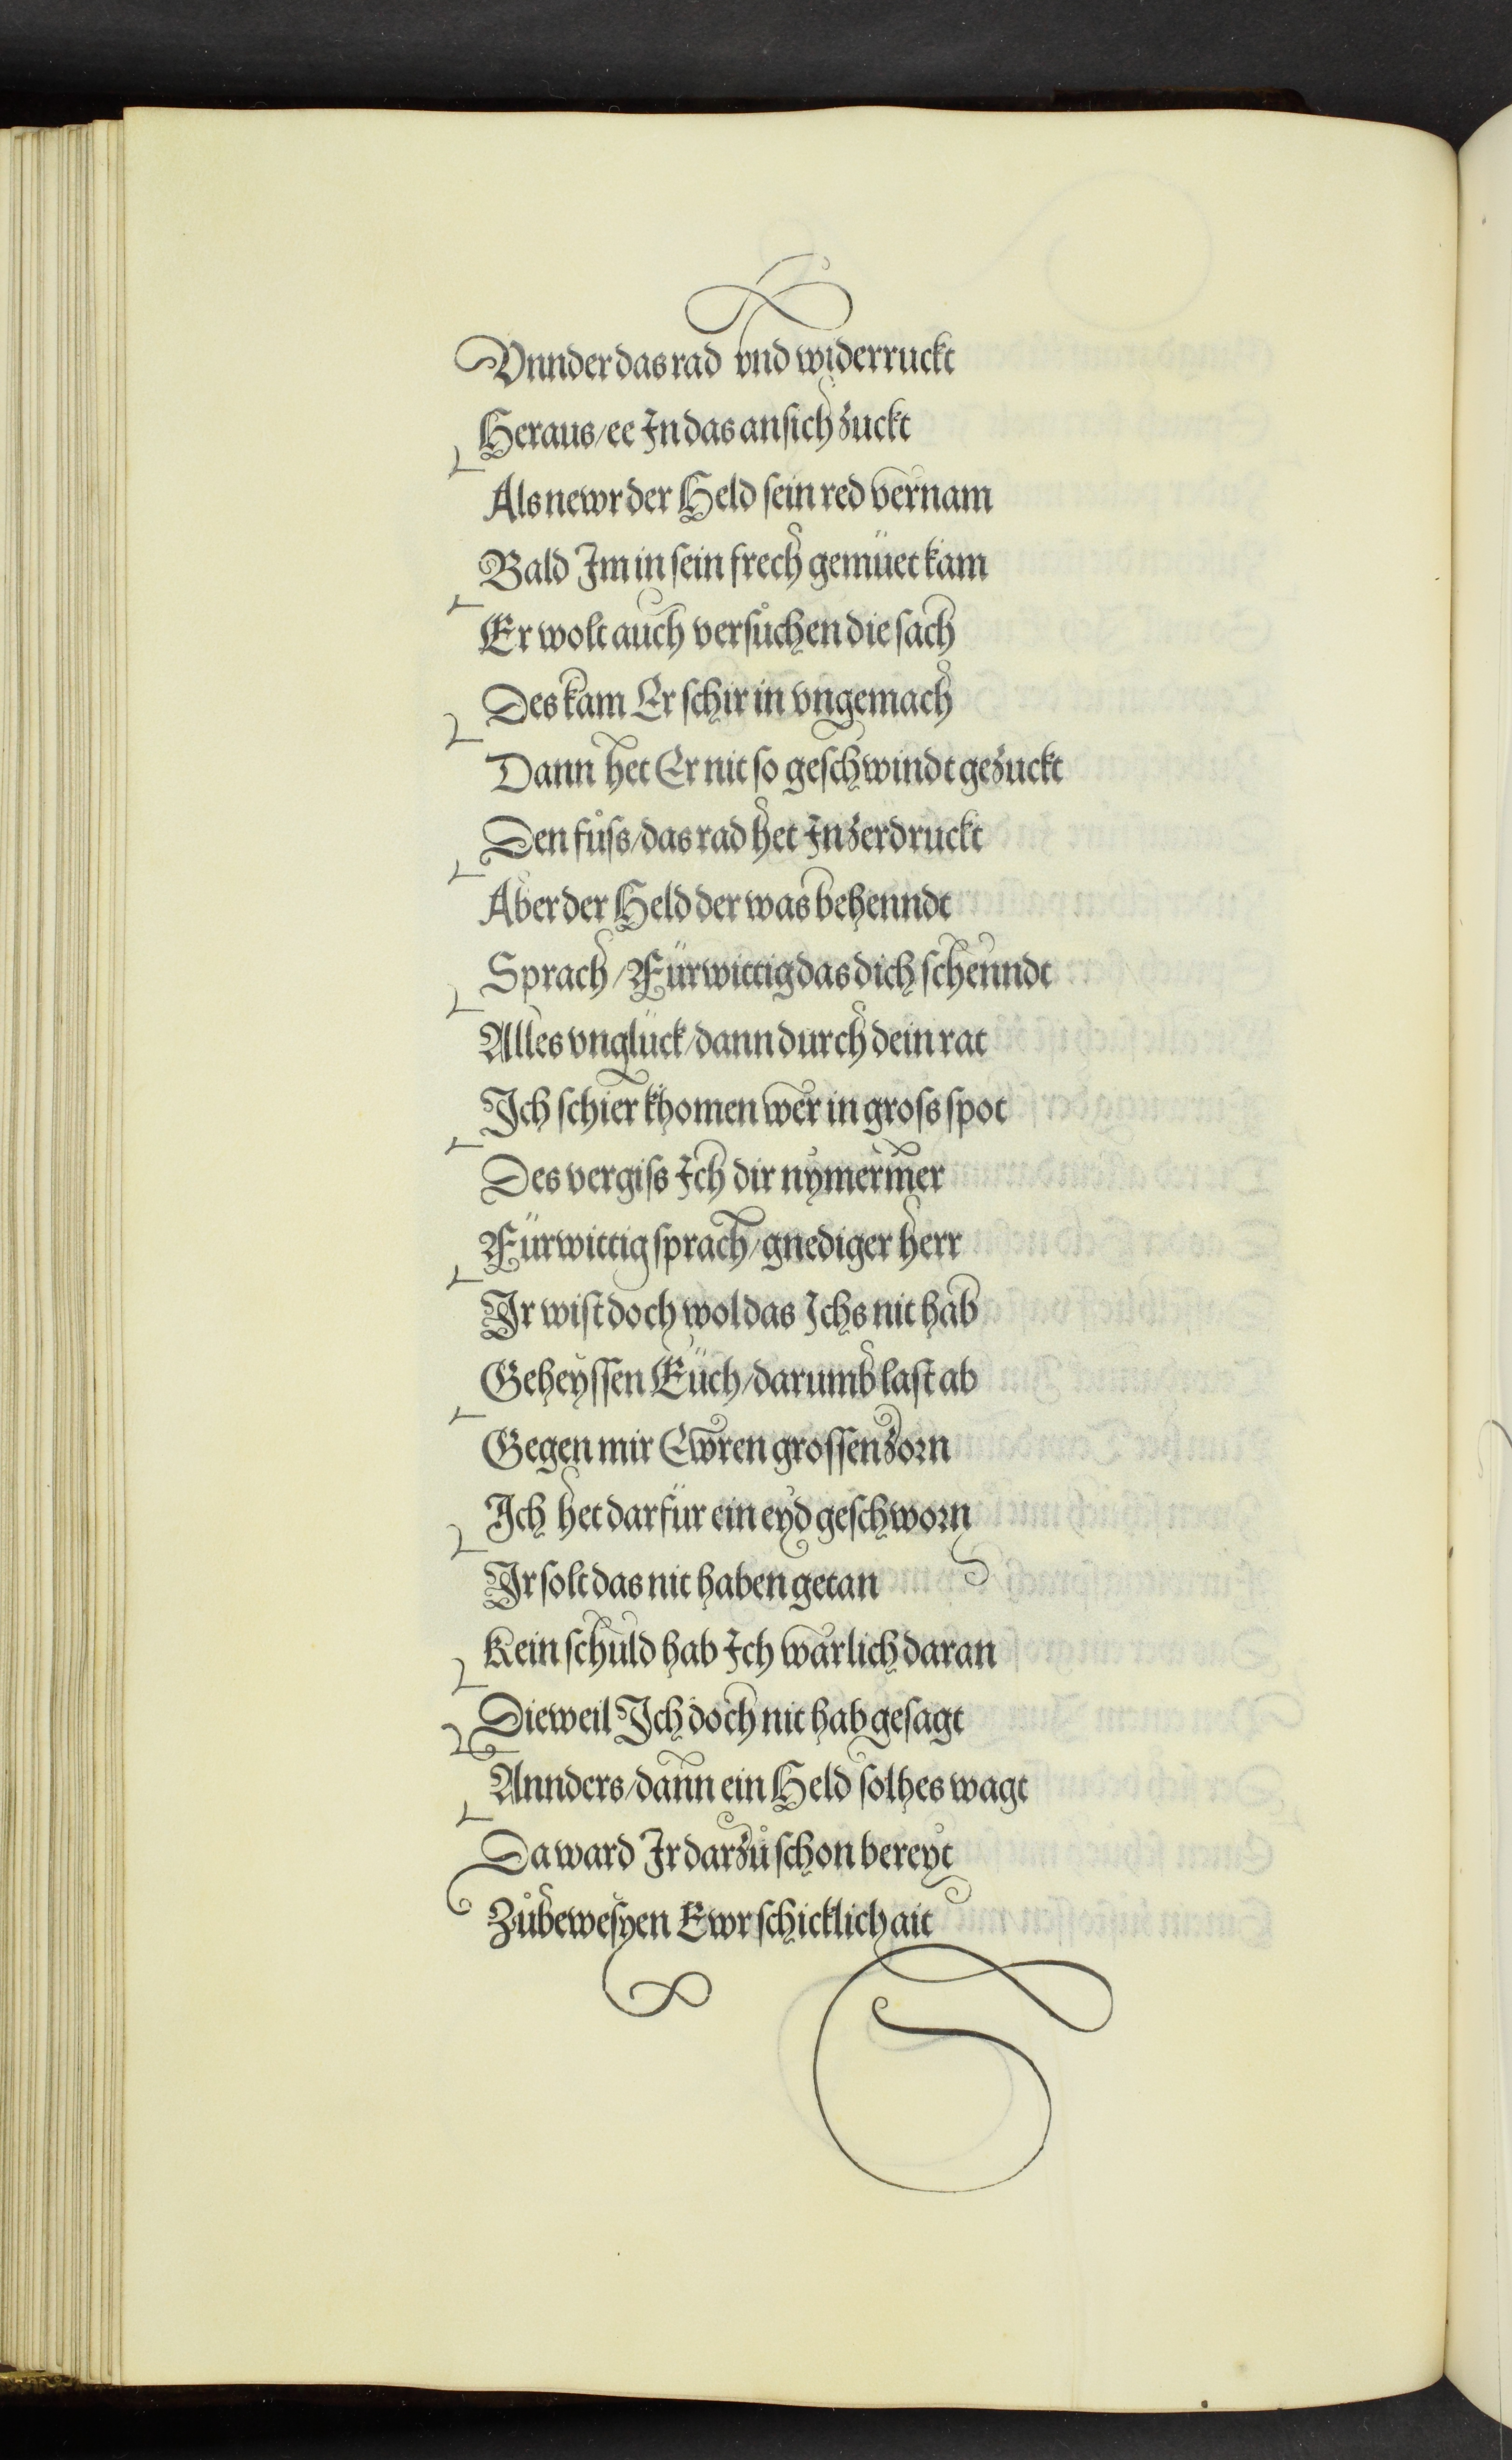 Vnnder das rad vnd widerruckt
Heraus/ee In das an sich zuckt
Als newr der Held sein red vernam
Bald Im in sein frech gemüet kam
Er wolt auch versůchen die sach
Des kam Er schir in vngemach
Dann het Er nit so geschwindt gezuckt
Den fůss/das rad het In zerdruckt
Aber der Held der was behenndt
Sprach/Fürwittig das dich schenndt
Alles vnglück/dann durch dein rat
Ich schier khomen wer in gross spot
Des vergiss Ich dir nymermer
Fürwittig sprach/gnediger herr
Ir wist doch wol das Ichs nit hab
Geheyssen Euch/darumb last ab
Gegen mir Ewren grossen zorn
Ich het darfür ein eyd geschworn
Ir solt das nit haben getan
Kein schuld hab Ich warlich daran
Dieweil Ich doch nit hab gesagt
Annders/dann ein Held solhes wagt
Da ward Ir darzů schon bereyt
Zůbewesyen Ewr schicklichait